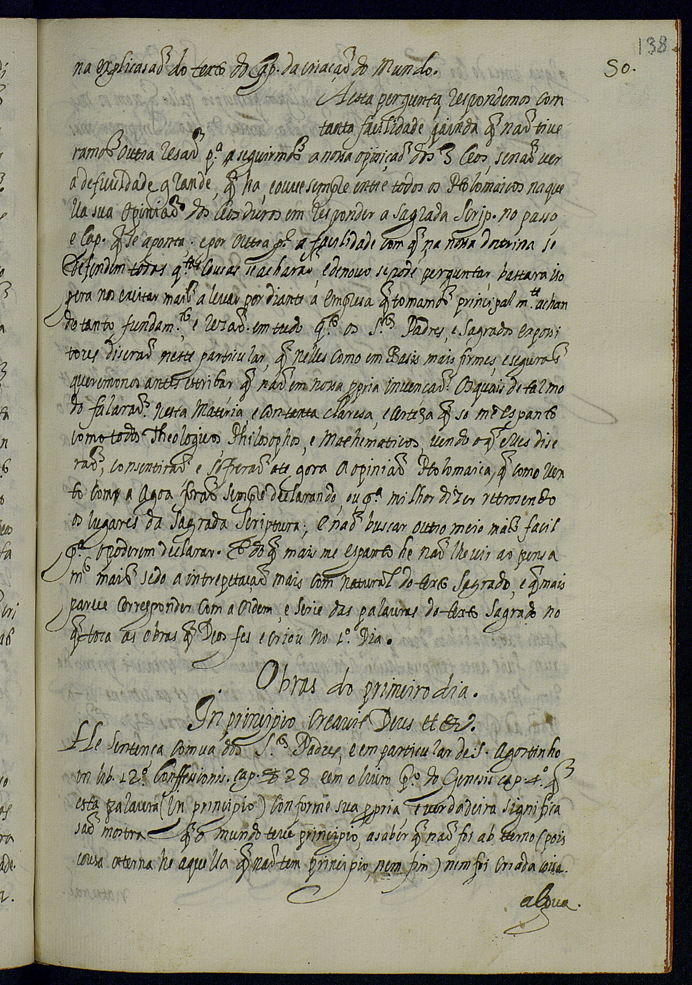 138
50.
na explicasaõ do texto do Cap. da criacaõ do Mundo.
A esta pergunta respondemos com
tanta facilidade q̃ ainda q̃ naõ tive
ramos outra resaõ pª seguirmos a nossa opiniaõ dos 3 Ceos, senaõ ver
a deficuldade grande, q̃ ha, e ouve sempre entre todos os Ptolomaicos na que
lla sua opiniaõ dos Ceos duros em responder a Sagrada Scrip. no passo
e Cap. q̃ se aponta, e por outra pᵗᵉ a facilidade com q̃ na nossa doctrina se
defendem todas qᵗᵃˢ cousas se acharaõ, e denovo se pode perguntar, bastara iso
pera nos exitar mais a levar por diante a empresa q̃ tomamos principal mᵗᵉ achan
do tanto fundamᵗᵒ, e resaõ em tudo qᵗᵒ os Sᵗᵒˢ Padres, e Sagrados exposi
tores diseraõ neste particular, q̃ nelles como em Basis mais firmes, e seguras
queremonos antes estribar q̃ naõ em nossa ppria invencaõ. Os quais de tal mo
do falaraõ nesta Materia e com tanta claresa, e certeza q̃ so me espanto
como todos Theologicos Philosophos, e Mathematicos, vendo o q̃ elles dise
raõ, consentiraõ e sofreraõ ate gora a opiniaõ Ptolomaica, q̃ como ven
to com a Agoa foraõ sempre declarando, ou pª milhor dizer retrosendo
os lugares da Sagrada Scriptura; e naõ buscar outro meio mais facil
pª o poderem declarar. E do q̃ mais me espanto he naõ lhe vir ao pensa
mᵗᵒ mais sedo a intrepetaçaõ mais com natural do texto Sagrado, e q̃ mais
parece corresponder com a ordem, e serie das palavras do texto Sagrado no
q̃ toca as obras q̃ Deos fes e criou no 1º Dia.
Obras do primeiro dia.
In principio Creavit Deus et &c.
He Sentença comua dos Sᵗᵒˢ Padres, e em particular de S. Agostinho
in lib. 12º Conffessionis. cap. 28 e em o livro pº do Genesis cap. 4. q̃
esta palavra (In principio) conforme sua ppria e verdadeira significa
saõ mostra q̃ o mundo teve principio, a saber q̃ naõ foi ab terno (pois
cousa eterna he aquella q̃ naõ tem principio, nem fin) nem foi criada cousa
algua.